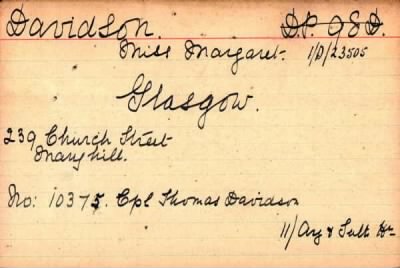 Davidson. D.P. O & D.
Miss Margaret. 1/D/23505
Glasgow.
239 Church Street
Maryhill.
No: 10375. Cpl Thomas Davidson
11/Arg & Suth Hrs